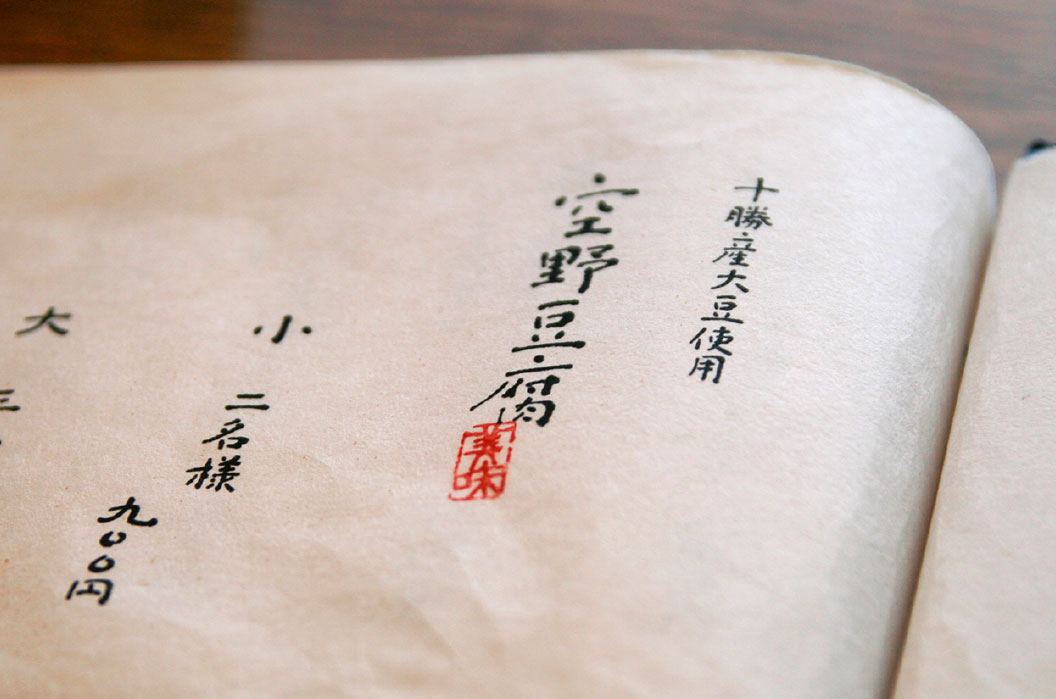 十勝産大豆使用
空野豆腐
美味
小 二名様 九〇〇円
大